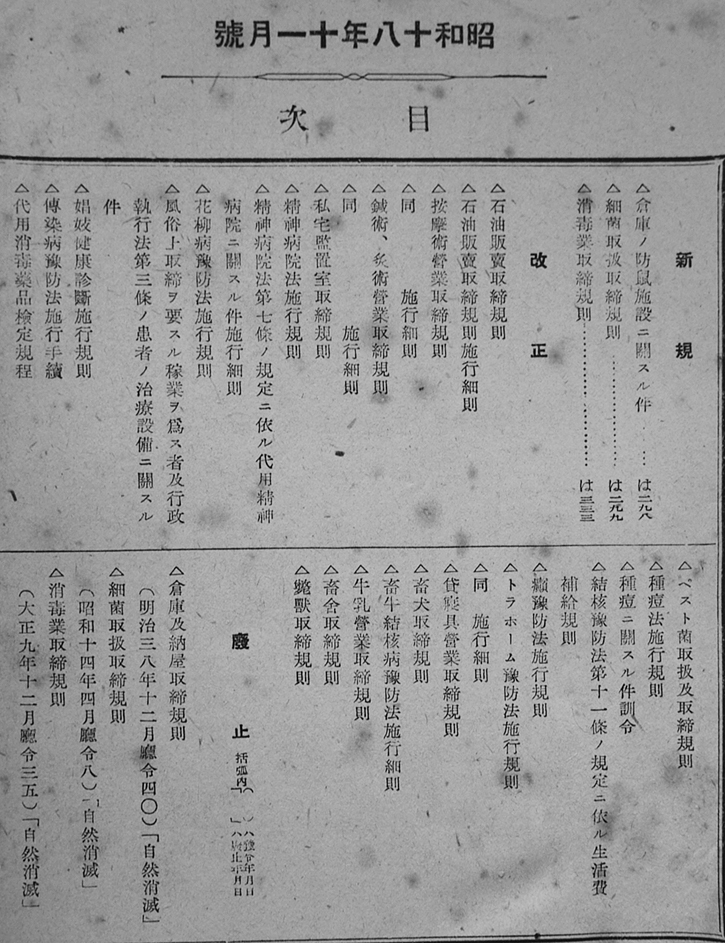 昭和十八年十一月號
目次
新規
△倉庫ノ防鼠施設ニ關スル件……は二九八
△細菌取扱取締規則………………は二九九
△消毒業取締規則…………………は三三三
改正
△石油販賣取締規則
△石油販賣取締規則施行細則
△按摩術營業取締規則
△同　施行細則
△鍼術、灸術營業取締規則
△同　施行細則
△私宅監置室取締規則
△精神病院法施行規則
△精神病院法第七條ノ規定ニ依ル代用精神
病院ニ關スル件施行細則
△花柳病豫防法施行規則
△風俗上取締ヲ要スル稼業ヲ爲ス者及行政
執行法第三條ノ患者ノ治療設備ニ關スル
件
△娼妓健康診斷施行規則
△傳染病豫防法施行手續
△代用消毒藥品檢定規程
△ペスト菌取扱及取締規則
△種痘法施行規則
△種痘ニ關スル件訓令
△結核豫防法第十一條ノ規定ニ依ル生活費
補給規則
△癩豫防法施行規則
△トラホーム豫防法施行規則
△同　施行細則
△貸寢具營業取締規則
△畜犬取締規則
△畜牛結核病豫防法施行細則
△牛乳營業取締規則
△畜舍取締規則
△斃獸取締規則
廢止
括弧内（　）ハ發令年月日
「　」ハ廢止年月日
△倉庫及納屋取締規則
（明治三八年十二月廳令四〇）「自然消滅」
△細菌取扱取締規則
（昭和十四年四月廳令八）「自然消滅」
△消毒業取締規則
（大正九年十二月廳令三五）「自然消滅」